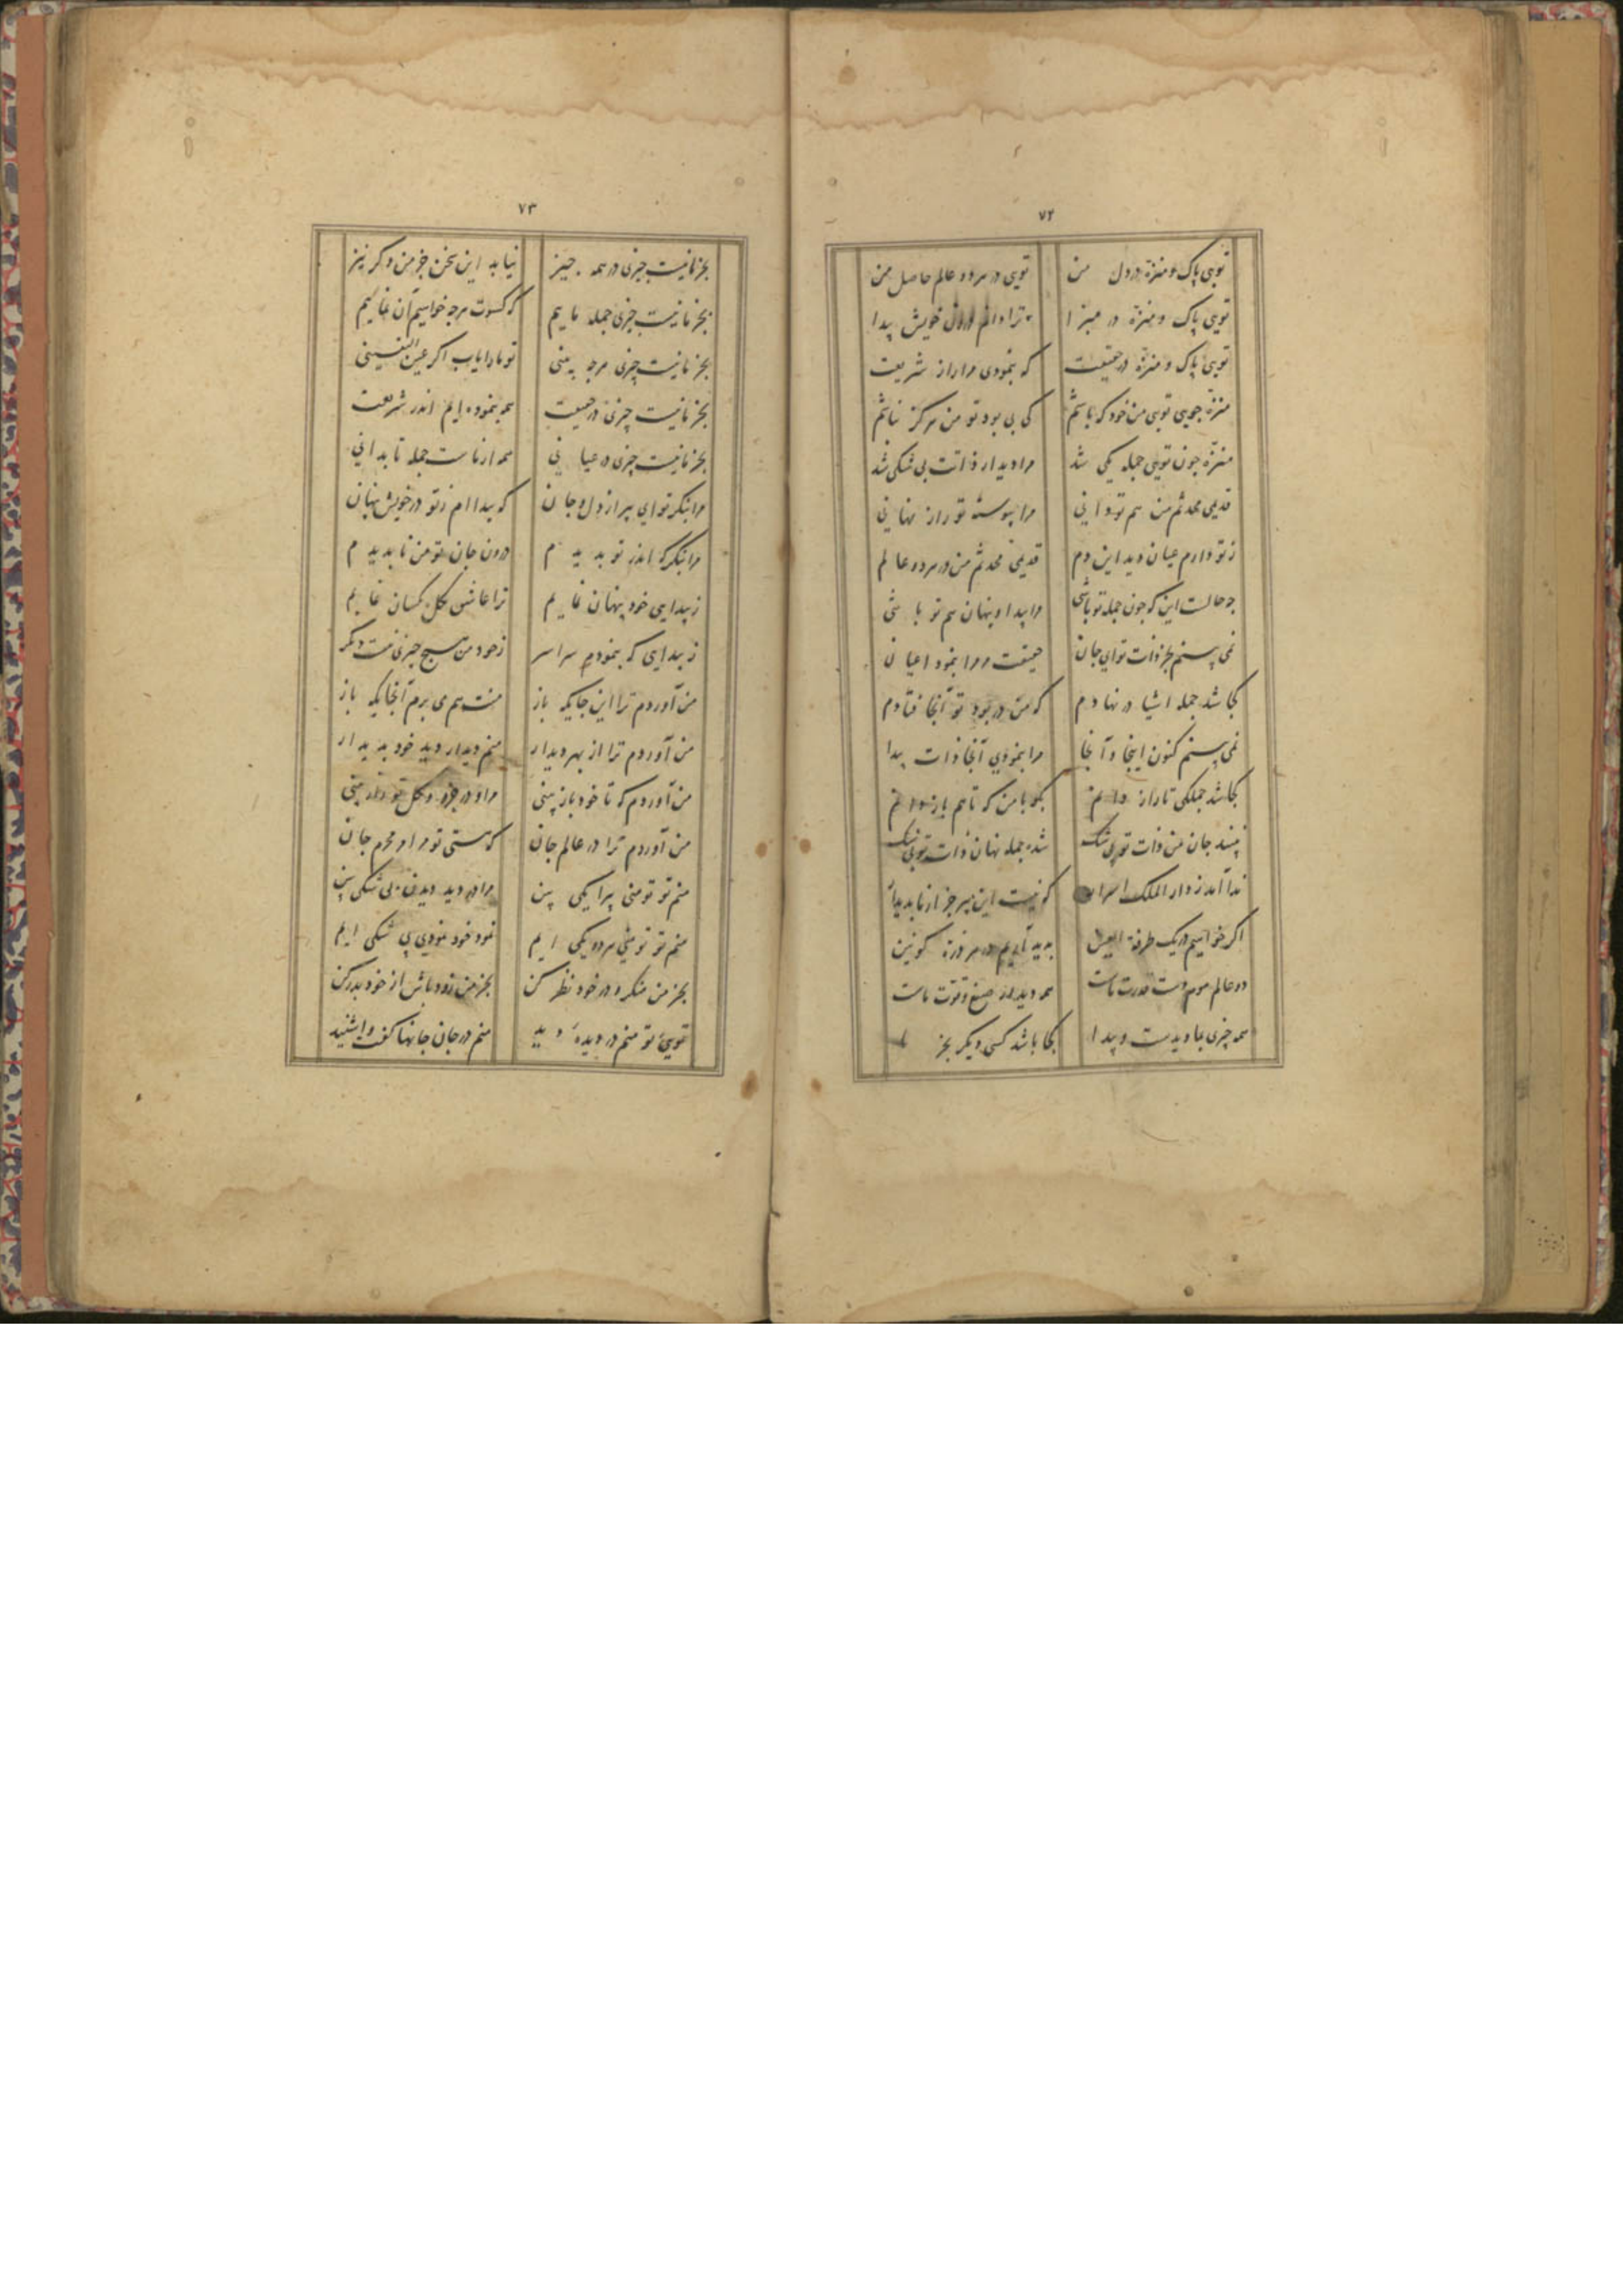 ۷۲
تویی پاک و منزه در دل من تویی در هر دو عالم حاصل من
تویی پاک و منزه در مبرا ترا دانم درون خویش پیدا
تویی پاک و منزه در حقیقت که بنمودی مرا راز شریعت
منزه چون تویی من خود که باشم که بی بود تو من هرگز نباشم
منزه چون تویی جمله یکی شد مرا دیدار ذاتت بی شکی شد
قدیمی محدثم من هم تو دانی مرا پیوسته تو راز نهانی
ز تو دارم عیان دید این دم قدیمی محدثم من در دو عالم
چه حالست این که چون جمله تو باشی مرا پیدا و پنهان هم تو باشی
نمی بینم بجز ذات تو ای جان حقیقت مر مرا بنمود اعیان
کجا شد جمله اشیا در نهادم که من در بود تو آنجا فتادم
نمی بینم کنون اینجا و آنجا مرا بنمودی آنجا ذات پیدا
کجا شد جملگی تا راز دانم بگو با من که تا هم باز دانم
نبیند جان من ذات تو بی شک شده جمله نهان ذات تویی یک
ندا آمد ز دار الملک اسرار که نیست این سر جز از ما پدیدار
اگر خواهیم در یک طرفة العین پدید آریم در هر ذره کونین
دو عالم موم دست قدرت ماست همه دیدار صنع و قوت ماست
همه چیزی بما دیدست و پیدا کجا باشد کسی دیگر بجز ما
۷۳
بجز ما نیست چیزی در همه چیز نیابد این سخن جز من دگر نیز
بجز ما نیست چیزی جمله ماییم که کسوت هرچه خواهیم آن نماییم
بجز ما نیست چیزی هرچه بینی تو ما را یاب اگر عین الیقینی
بجز ما نیست چیزی در حقیقت همه بنموده ایم اندر شریعت
بجز ما نیست چیزی در عیانی همه از ماست جمله تا بدانی
مرا بنگر تو ای پیر از دل و جان که پیدا ام ز تو در خویش پنهان
مرا بنگر که اندر تو پدیدم درون جان تو من ناپدیدم
ز پیدایی خود پنهان نمایم ترا عاشق بکل یکسان نمایم
ز پیدایی که بنمودم سراسر ز خود من هیچ چیزی نیست دیگر
من آوردم ترا این جایگه باز منت هم می برم آنجایگه باز
من آوردم ترا از بهر دیدار منم دیدار دید خود پدیدار
من آوردم که تا خود باز بینی مرا در جزو و کل تو راز بینی
من آوردم ترا در عالم جان که هستی تو مرا و محرم جان
منم تو تو منی پیرا یکی بین مرا در دید دیدن بی شکی بین
منم تو تو منی هر دو یکی ایم نمود خود نمودی بی شکی ایم
بجز من منگر و در خود نظر کن بجز من زود باش از خود بدر کن
تویی تو منم در دیده دید منم در جان جانها گفت و اشنید